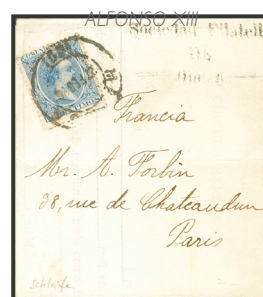 ALFONSO XIII
Sociedad Filateli
Francia
Mr. A. Forbin
38, rue de Chateaudun
Paris
Schleife